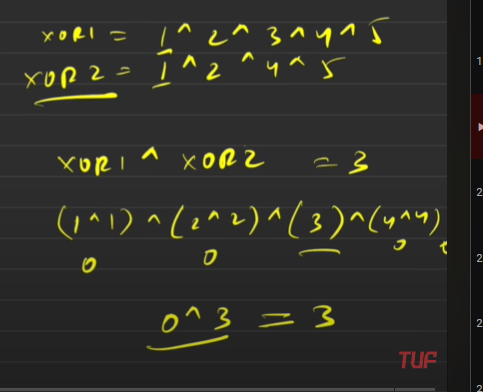 XOR1 = 1 ^ 2 ^ 3 ^ 4 ^ 5
XOR2 = 1 ^ 2 ^ 4 ^ 5
XOR1 ^ XOR2 = 3
(1^1) ^ (2^2) ^ (3) ^ (4^4)
0 0 0
0 ^ 3 = 3
TUF
1
2
2
2
2